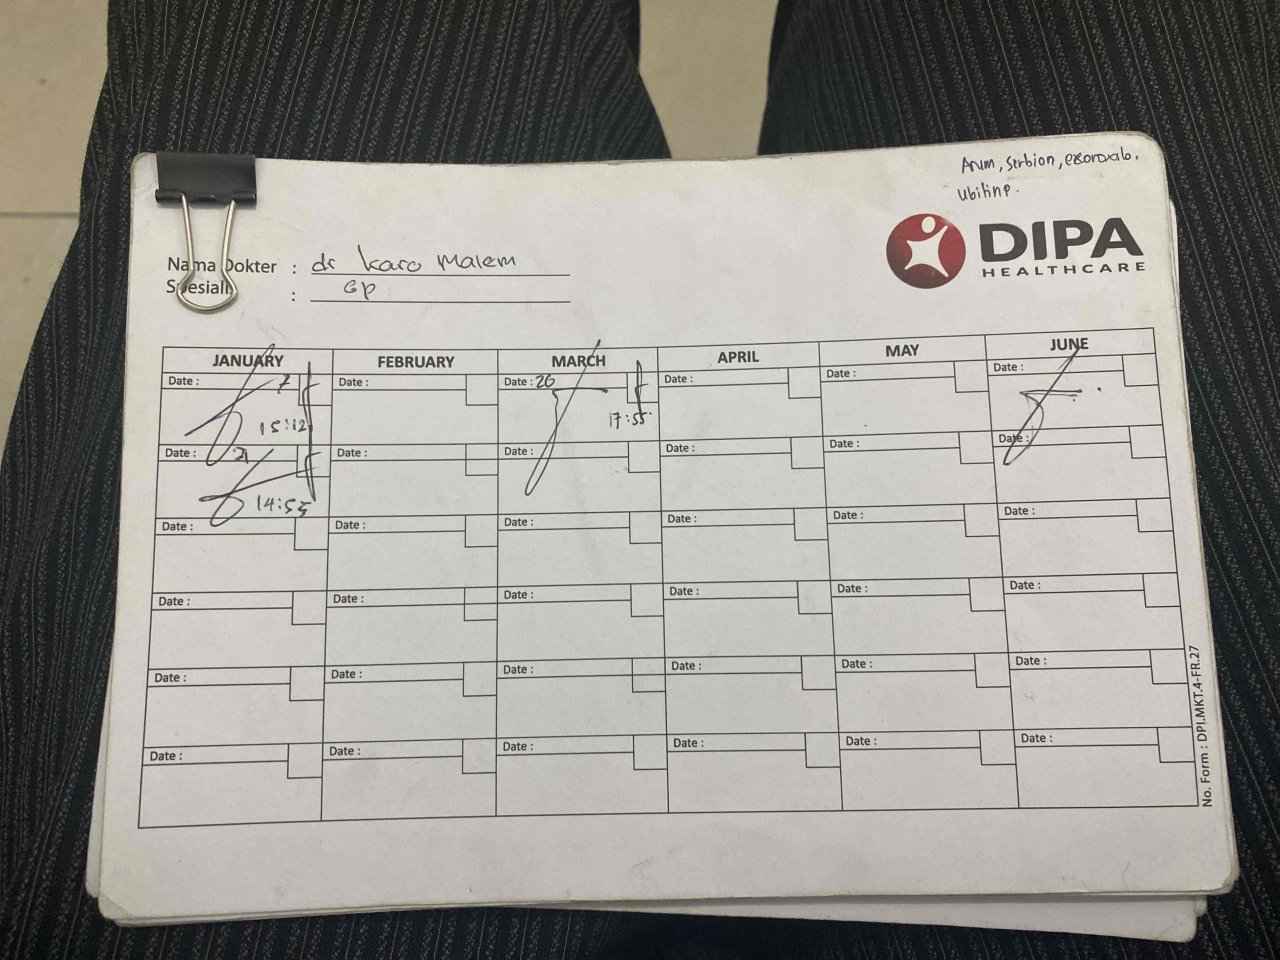 Arum, Serbion,
Ubilinp.
DIPA
HEALTHCARE
Nama Dokter : dr Karo Malem
Spesiali : GP
JANUARY FEBRUARY MARCH APRIL MAY JUNE
Date : 7 Date : Date : 26 Date : Date : Date :
15:12 17:55
Date : 21 Date : Date : Date : Date : Date :
14:55
Date : Date : Date : Date : Date : Date :
Date : Date : Date : Date : Date : Date :
Date : Date : Date : Date : Date : Date :
Date : Date : Date : Date : Date : Date :
No. Form : DPI.MKT.4-FR.27